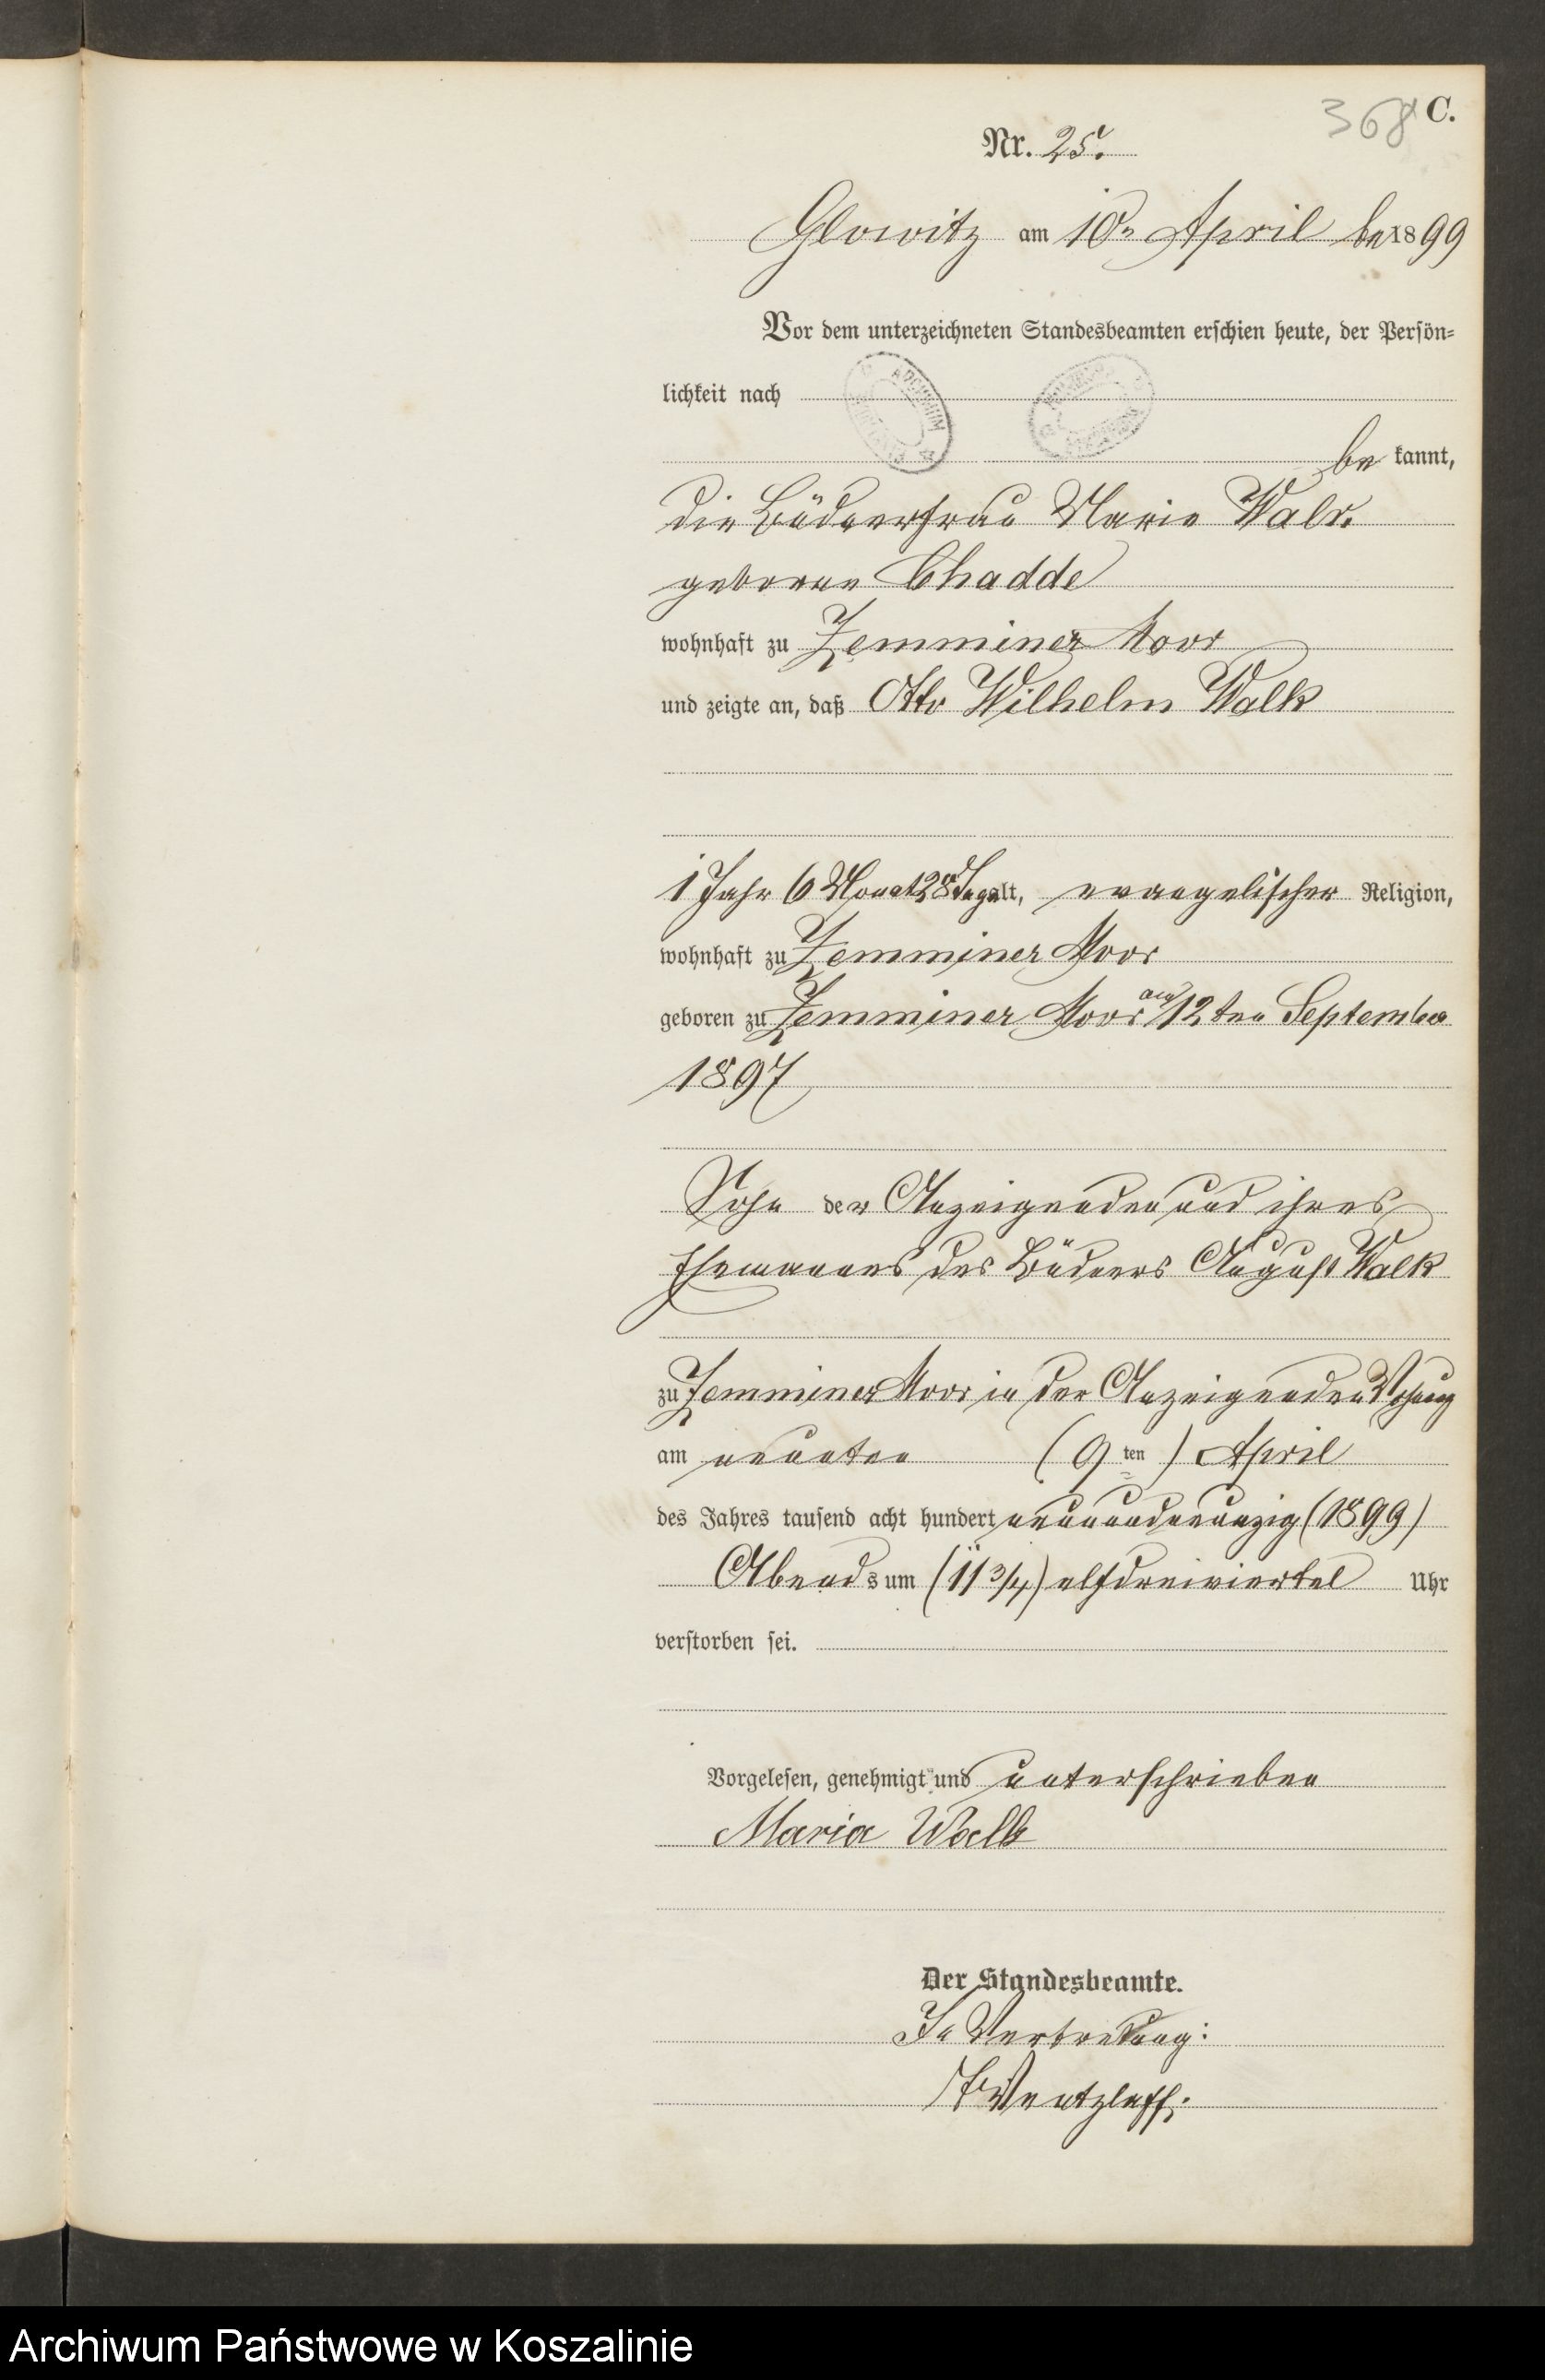 368 C.
Nr. 25.
Glowitz am 10n April be 1899
Vor dem unterzeichneten Standesbeamten erschien heute, der Persön-
lichkeit nach
be kannt,
die Büdnerfrau Marie Walk.
geborne Chadde
wohnhaft zu Zemminer Moor
und zeigte an, daß Otto Wilhelm Walk
1 Jahr 6 Monat 28 Tage alt, evangelischer Religion,
wohnhaft zu Zemminer Moor
geboren zu Zemminer Moor am 12ten September
1897
Sohn der Anzeigenden und ihres
Ehemannes des Büdners August Walk
zu Zemminer Moor in der Anzeigenden Wohnung
am neunten (9 ten) April
des Jahres tausend acht hundert neunundneunzig (1899)
Abends um (11 3/4) elfdreiviertel Uhr
verstorben sei.
Vorgelesen, genehmigt und unterschrieben
Maria Walk
Der Standesbeamte.
In Vertretung:
Wentzlaff.
Archiwum Państwowe w Koszalinie